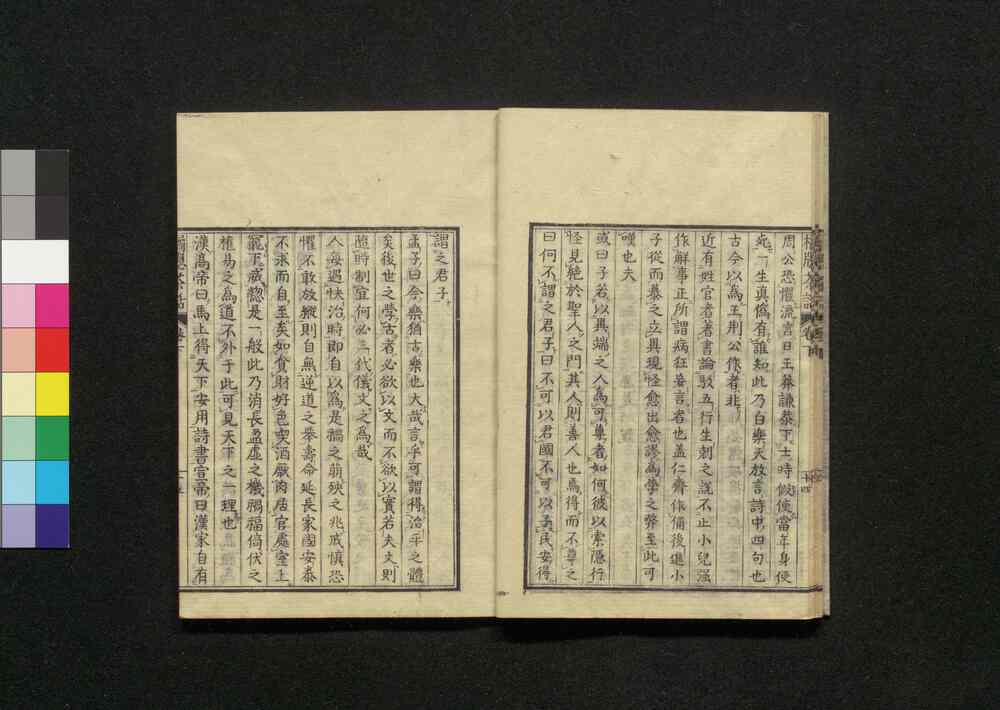 周公恐懼流言日王莽謙恭下士時假使當年身便
死一生真偽有誰知此乃白樂天放言詩中四句也
古今以為王荊公作者非
近有姓官者著書論駁五行生剋之說不止小兒强
作解事正所謂病狂妄言者也蓋仁齊作俑後進小
子從而暴之立異現怪愈出愈謬為學之弊至此可
嘆也夫
或曰子若以異端之人為可棄者如何彼以索隱行
怪見絶於聖人之門其人則善人也焉得而不尊之
曰何不謂之君子曰不可以君國不可以子民安得
謂之君子
孟子曰今樂猶古樂也大哉言乎可謂得治平之體
矣後世之學古者必欲以文而不欲以實若夫文則
隨時制宜何必三代儀文之為哉
人每遇快治時即自以為是禍之萌殃之兆戒慎恐
懼不敢放縱則自無逆道之舉壽命延長家國安泰
不求而自至矣如貪財好色喫酒厭肉居官處室上
寵下威總是一般此乃消長盈虛之機禍福倚伏之
樵易之為道不外于此可見天下之一理也
漢高帝曰馬上得天下安用詩書宣帝曰漢家自有